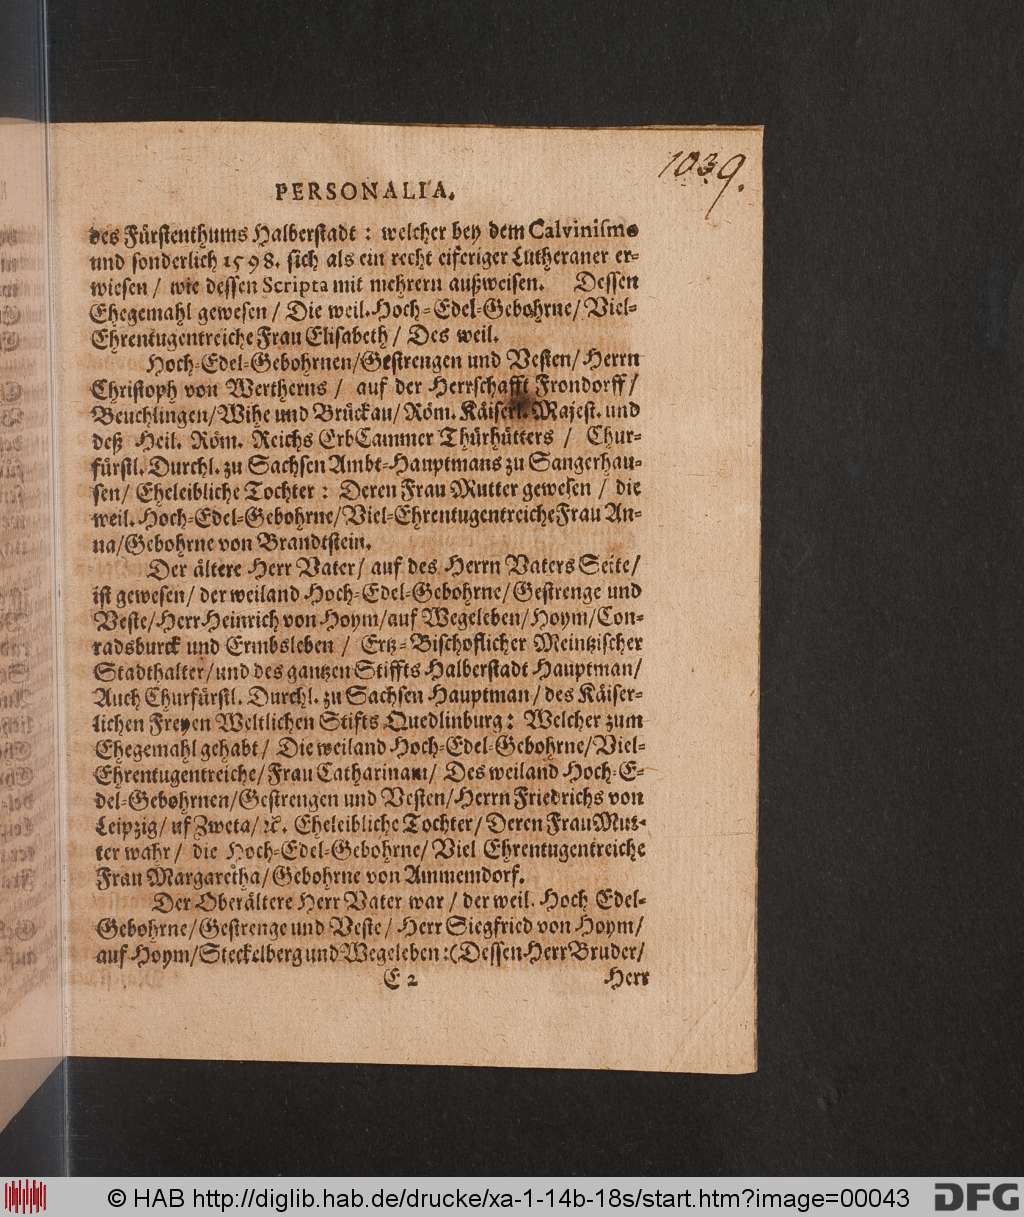 1039.
PERSONALIA.
des Fürstenthums Halberstadt : welcher bey dem Calvinismo
und sonderlich 1598. sich als ein recht eiferiger Lutheraner er-
wiesen / wie dessen Scripta mit mehrern außweisen. Dessen
Ehegemahl gewesen / Die weil. Hoch-Edel-Gebohrne / Viel-
Ehrentugentreiche Frau Elisabeth / Des weil.
Hoch-Edel-Gebohrnen / Gestrengen und Vesten / Herrn
Christoph von Wertherns / auf der Herrschafft Frondorff /
Beuchlingen / Wihe und Brückau / Röm. Käiserl. Majest. und
deß Heil. Röm. Reichs ErbCammer Thürhütters / Chur-
fürstl. Durchl. zu Sachsen Ambt-Hauptmans zu Sangerhau-
sen / Eheleibliche Tochter : Deren Frau Mutter gewesen / die
weil. Hoch-Edel-Gebohrne / Viel-Ehrentugentreiche Frau An-
na / Gebohrne von Brandtstein.
Der ältere Herr Vater / auf des Herrn Vaters Seite /
ist gewesen / der weiland Hoch-Edel-Gebohrne / Gestrenge und
Veste / Herr Heinrich von Hoym / auf Wegeleben / Hoym / Con-
radsburck und Ermbsleben / Ertz-Bischoflicher Meintzischer
Stadthalter / und des gantzen Stiffts Halberstadt Hauptman /
Auch Churfürstl. Durchl. zu Sachsen Hauptman / des Käiser-
lichen Freyen Weltlichen Stifts Quedlinburg : Welcher zum
Ehegemahl gehabt / Die weiland Hoch-Edel-Gebohrne / Viel-
Ehrentugentreiche / Frau Catharinam / Des weiland Hoch-E-
del-Gebohrnen / Gestrengen und Vesten / Herrn Friedrichs von
Leipzig / uf Zweta / ꝛc. Eheleibliche Tochter / Deren Frau Mut-
ter wahr / die Hoch-Edel-Gebohrne / Viel Ehrentugentreiche
Frau Margaretha / Gebohrne von Ammemdorf.
Der Oberältere Herr Vater war / der weil. Hoch Edel-
Gebohrne / Gestrenge und Veste / Herr Siegfried von Hoym /
auf Hoym / Steckelberg und Wegeleben : (Dessen Herr Bruder /
E 2 Herr
© HAB http://diglib.hab.de/drucke/xa-1-14b-18s/start.htm?image=00043 DFG